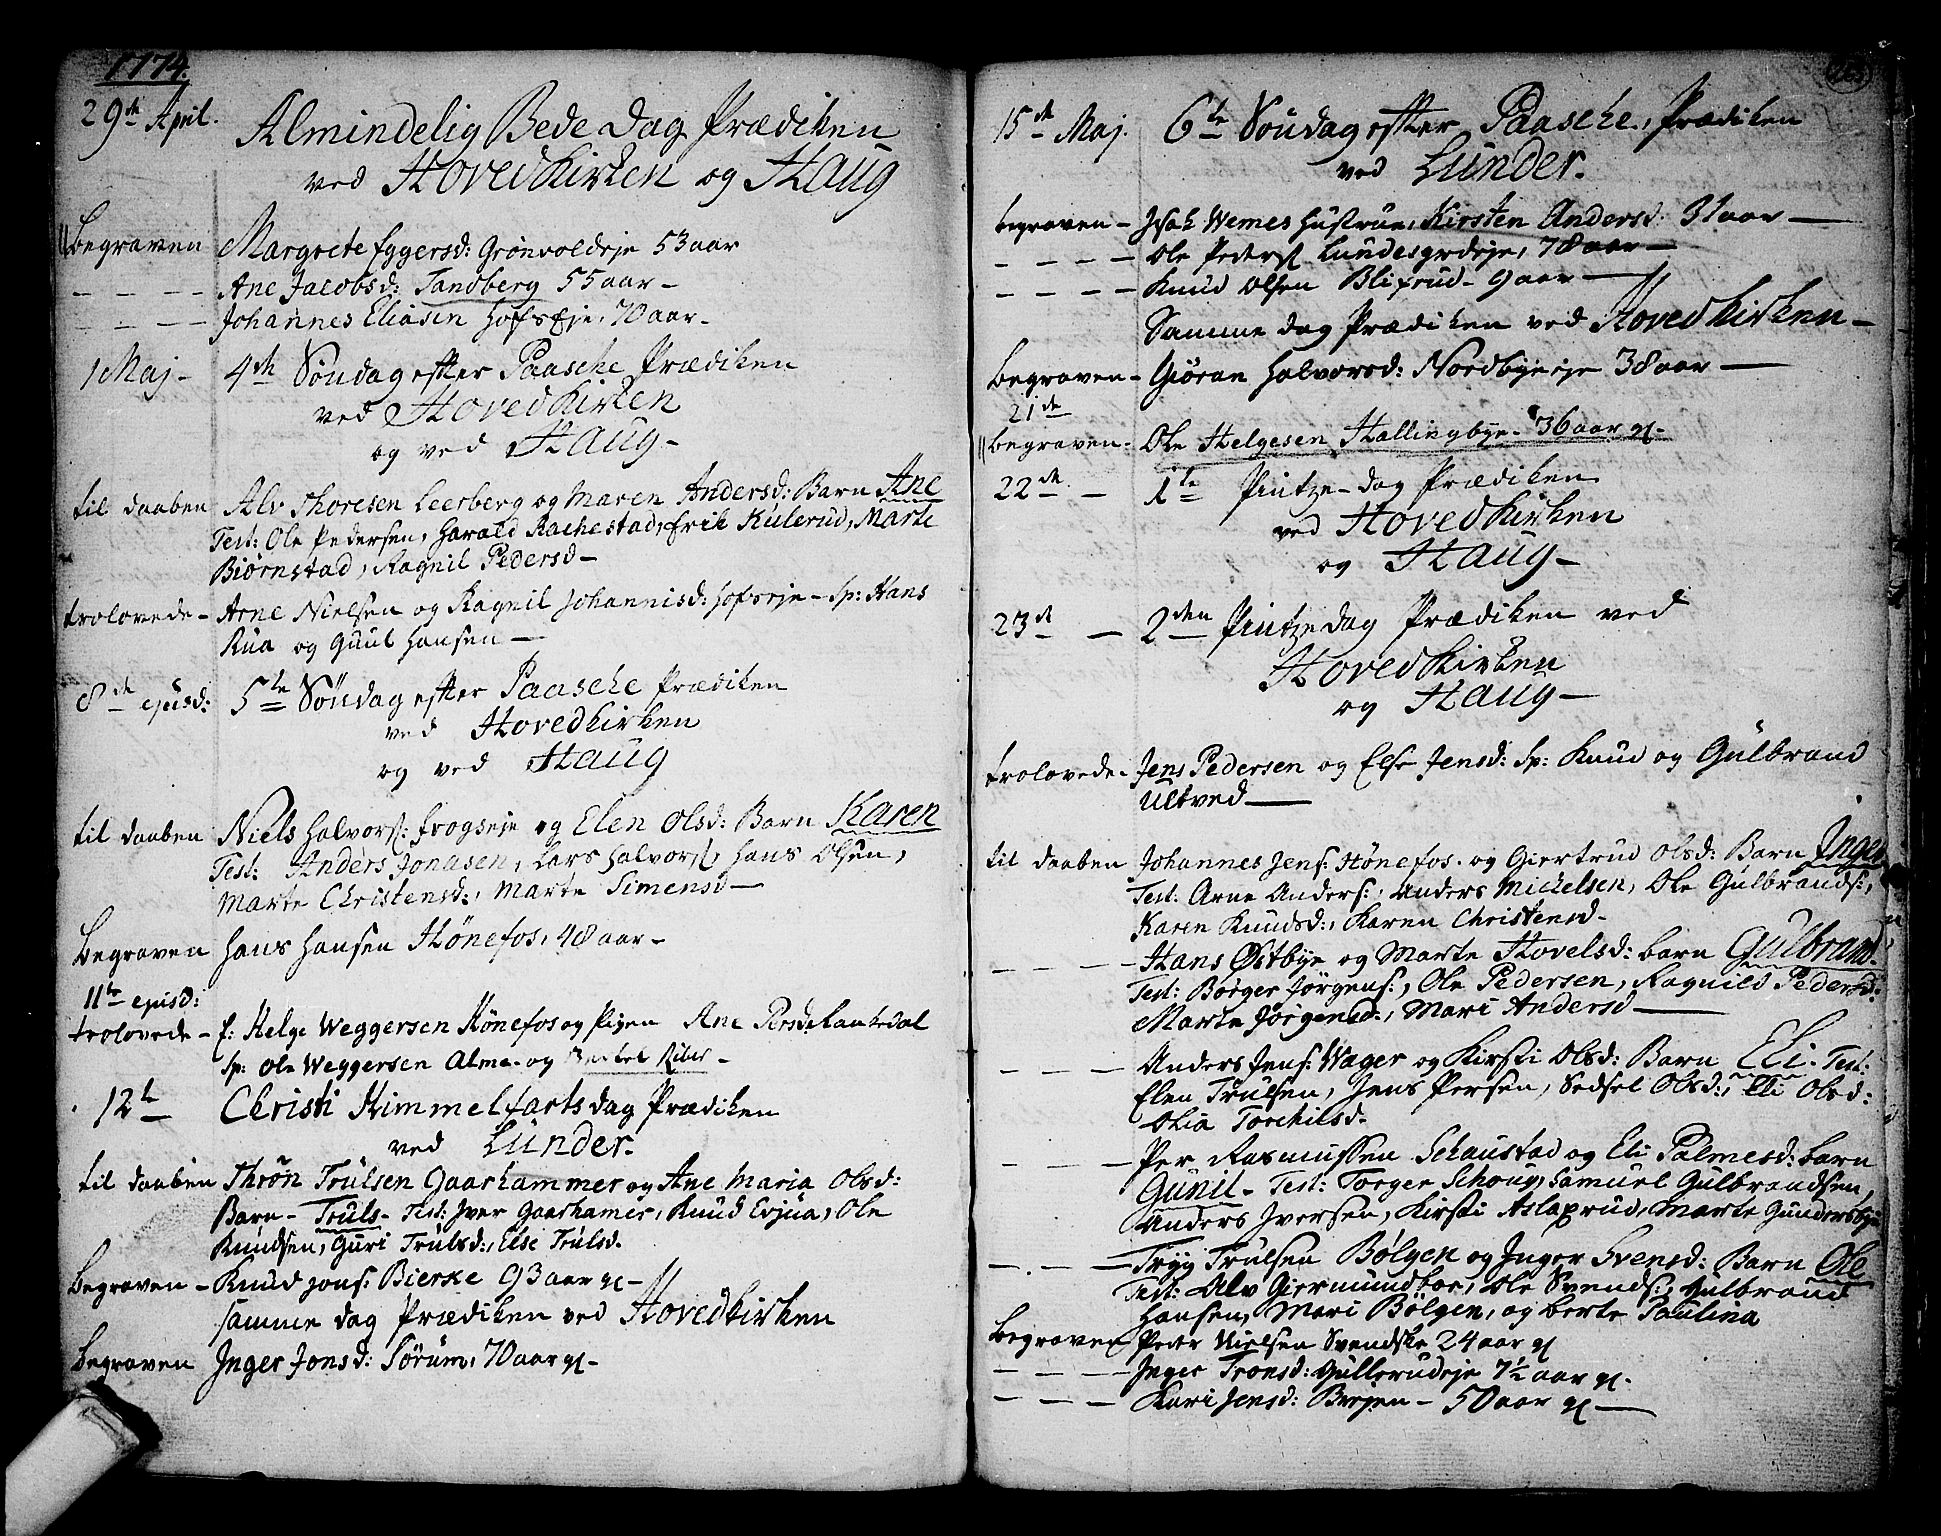 1774.
29de April. Almindelig Bede Dag Prædiken
ved Hovedkirken og Haug
Begraven Margrete Eggersd: Grönvoldeje 53 aar
- - - - Ane Jacobsd: Tandberg 55 aar -
- - - - Johannes Eliasen HofsEje, 70 aar -
1 Maj - 4de Söndag efter Paasche Prædiken
ved Hovedkirken
og ved Haug -
til daaben Alv Thoresen Leerberg og Maren Andersd: Barn Ane
Test: Ole Pedersen, Harald Rachestad, Erik Kulerud, Marte
Biörnstad, Ragnil Pedersd -
trolovede - Arne Nielsen og Ragnil Johannisd: Hofseje - Sp: Hans
Rua og Guul Hansen -
8de ejusd: 5te Söndag efter Paasche Prædiken
ved Hovedkirken
og ved Haug
til daaben Niels Halvors: Frogseje og Elen Olsd: Barn Karen
Test: Anders Jonasen, Lars Halvors, Hans Olsen,
Marte Christensd:, Marte Simensd -
Begraven Hans Hansen Hönefos, 48 aar -
11te ejusd:
trolovede - f: Helge Weggersen Hönefos og Pigen Ane Persd Lantedal
Sp: Ole Weggersen Alme - og Riber -
12te Christi Himmelfarts dag Prædiken
ved Lunder.
til daaben Thrön Trulsen Gaarhammer og Ane Maria Olsd:
Barn - Truls - Test: Iver Gaarhamer, Knud Evjua, Ole
Knudsen, Guri Trulsd:, Else Trulsd.
Begraven - Knud Jons: Bierke 93 aar gl -
samme dag Prædiken ved Hovedkirken
Begraven Inger Jonsd: Sörum, 70 aar gl -
15de Maj. 6te Söndag efter Paasche, Prædiken
ved Lunder.
begraven - Isak Wemes Hustrue, Kirsten Andersd: 31 aar -
- - - - Ole Peders Lundesgrdeje, 78 aar -
- - - - Knud Olsen Blixrud - 9 aar -
Samme dag Prædiken ved Hovedkirken -
Begraven - Giöran Halvorsd: Nordbyeeje 38 aar -
21de
begraven - Ole Helgesen Hallingbye - 36 aar gl -
22de - 1te Pintze-dag Prædiken
ved Hovedkirken
og Haug -
23de - 2den Pintzedag Prædiken ved
Hovedkirken
og Haug -
trolovede - Jens Pedersen og Else Jensd: Sp: Knud og Gulbrand
Ultved -
til daaben Johannes Jens: Hönefos. og Giertrud Olsd: Barn Inger
Test: Arne Anders:, Anders Michelsen, Ole Gulbrands:,
Karen Knudsd:, Karen Christensd -
- - - - Hans Östbye og Marte Hovelsd: barn Gulbrand -
Test: Börger Jörgens:, Ole Pedersen, Ragnild Pedersd:
Marte Jörgensd:, Mari Andersd -
- - - - Anders Jens: Wager og Kirsti Olsd: Barn Eli - Test:
Elen Trulsen, Jens Persen, Sedsel Olsd:, Eli Olsd:
Olia Torchilsd.
- - - - Per Rasmussen Schaustad og Eli Palmesd: barn
Gunil - Test: Torger Schoug, Samuel Gulbrandsen,
Anders Iversen, Kirsti Aslaxrud, Marte Gundersbye
- - - - Tryg Trulsen Bölgen og Inger Svensd: Barn Ole
Test: Alv Giermundboe, Ole Svends:, Gulbrand
Hansen, Mari Bölgen, og berte Paulina
Begraven Peter Nielsen Svendske 24 aar gl
- - - - Inger Tronsd: Gullerudeje 7½ aar gl -
- - - - Kari Jensd: Brejen - 50 aar gl -